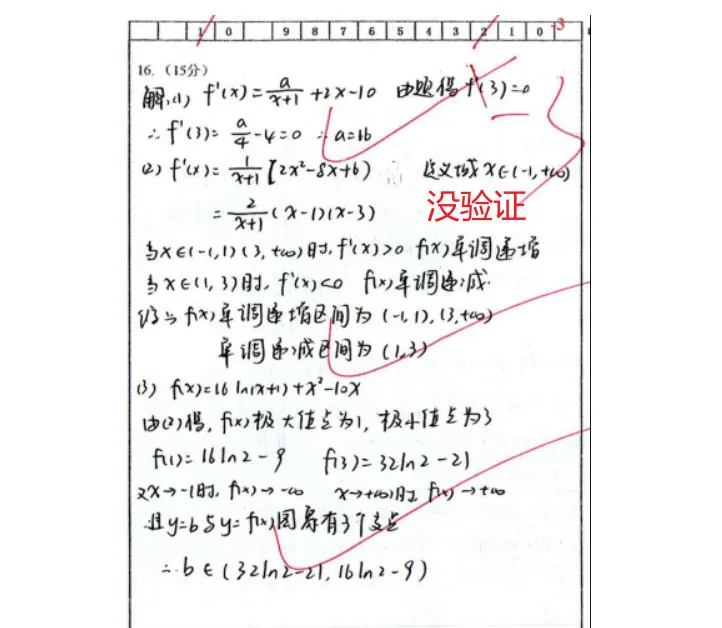 1 0 9 8 7 6 5 4 3 2 1 0 -3
16. （15分）
解:(1) f'(x)=a/(x+1)+2x-10 由题得 f'(3)=0
∴f'(3)=a/4-4=0 ∴a=16
(2) f'(x)=1/(x+1)[2x²-8x+6) 定义域 x∈(-1,+∞)
=2/(x+1)(x-1)(x-3)
没验证
当x∈(-1,1)(3,+∞)时,f'(x)>0 f(x)单调递增
当x∈(1,3)时,f'(x)<0 f(x)单调递减.
综上f(x)单调递增区间为(-1,1),(3,+∞)
单调递减区间为(1,3)
(3) f(x)=16ln(x+1)+x²-10x
由(2)得,f(x)极大值点为1,极小值点为3
f(1)=16ln2-9 f(3)=32ln2-21
又x→-1时,f(x)→-∞ x→+∞时 f(x)→+∞
且y=b与y=f(x)图象有3个交点
∴b∈(32ln2-21,16ln2-9)